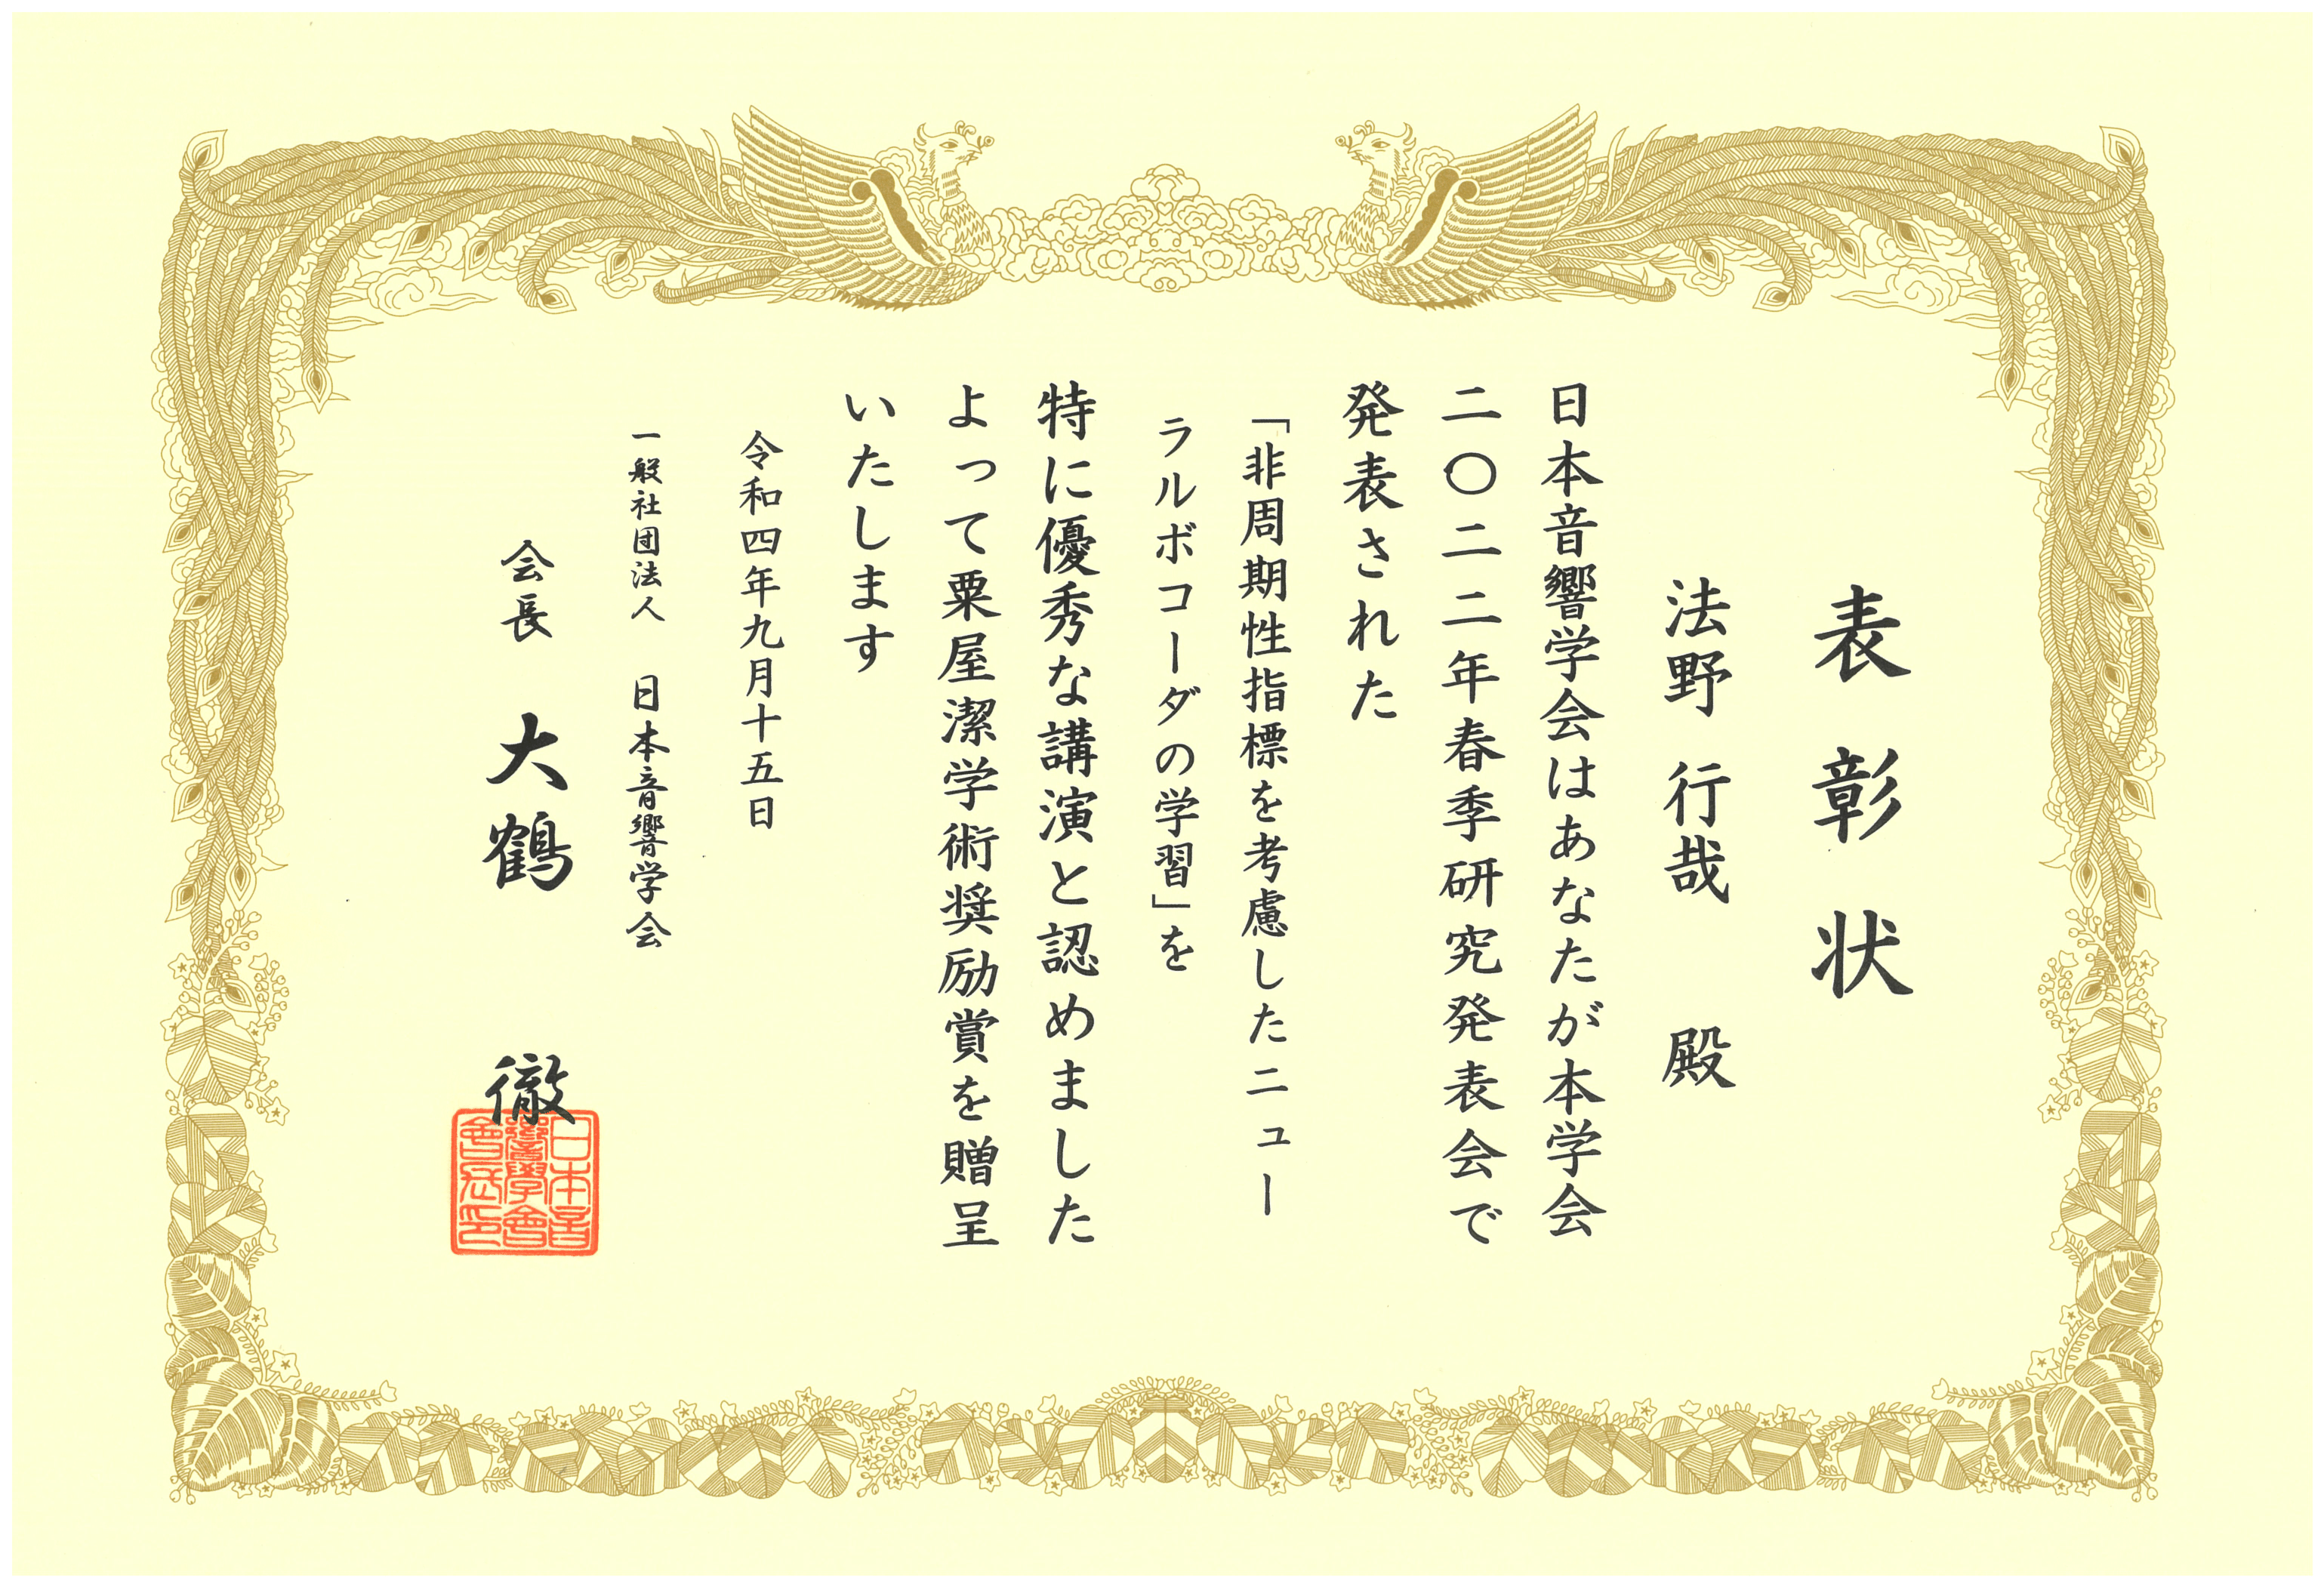 表彰状
法野 行哉 殿
日本音響学会はあなたが本学会
二〇二二年春季研究発表会で
発表された
「非周期性指標を考慮したニュー
ラルボコーダの学習」を
特に優秀な講演と認めました
よって粟屋潔学術奨励賞を贈呈
いたします
令和四年九月十五日
一般社団法人 日本音響学会
会長 大鶴 徹
日本音
響學會
會長印